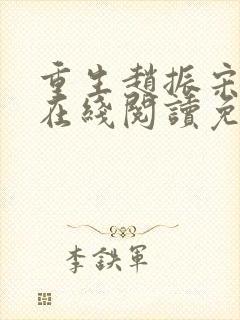 重生趙振宗
在綫閱讀免
李鉄軍